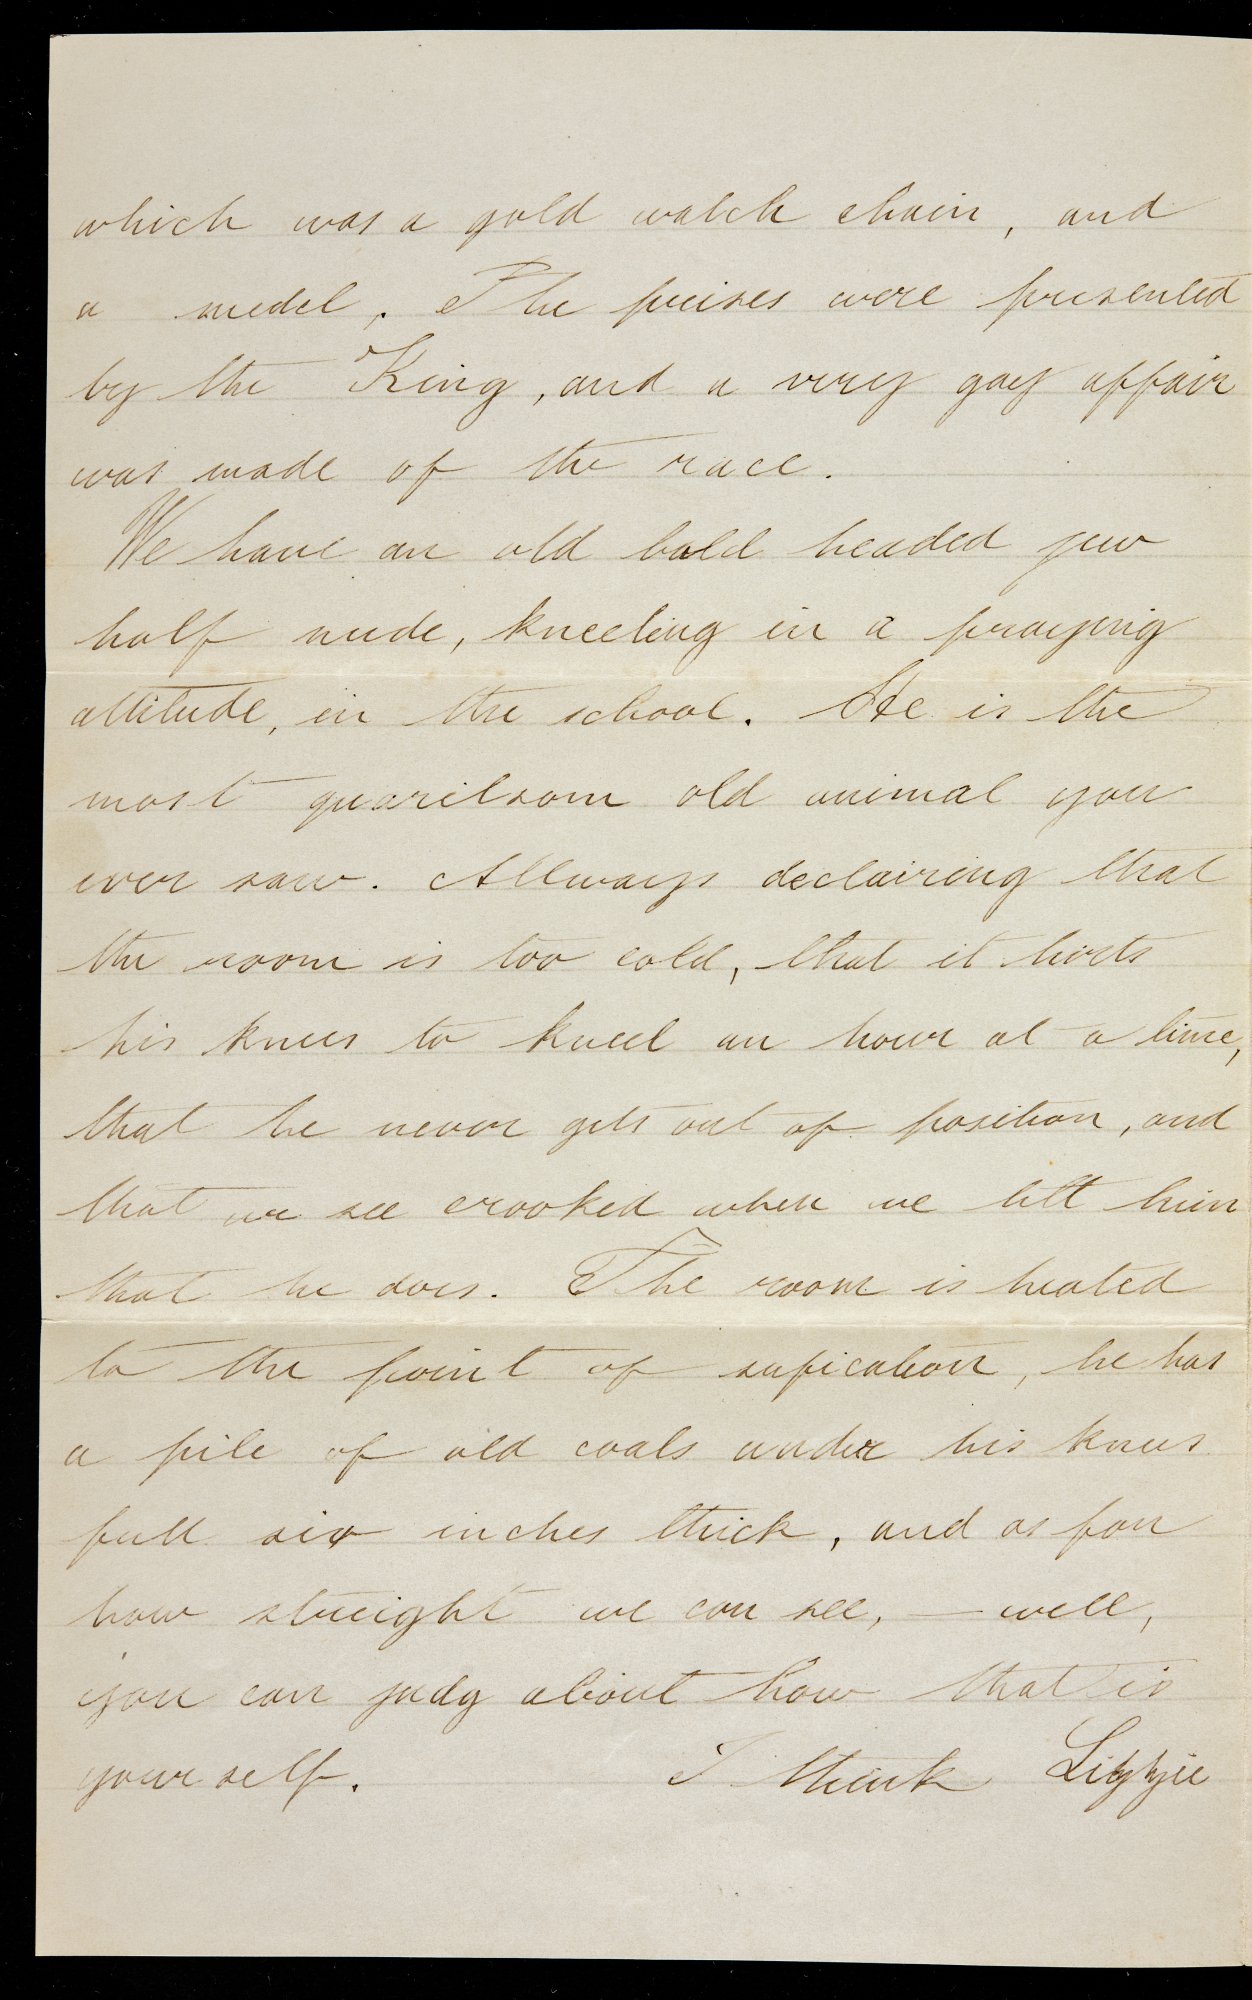 which was a gold watch chain, and
a medel. The preises were presented
by the King, and a very gay affair
was made of the race.
We have an old bald headed jew
half nude, kneeling in a praying
attitude, in the school. He is the
most quarelsom old animal you
ever saw. Allways declairing that
the room is too cold, that it hirts
his knees to kneel an hour at a time,
that he never gets out of position, and
that we see crooked when we tell him
that he does. The room is heated
to the point of sufication, he has
a pile of old coats under his knees
full six inches thick, and as for
how streight we can see, — well,
you can judg about how that is
yourself. I think Lizzie